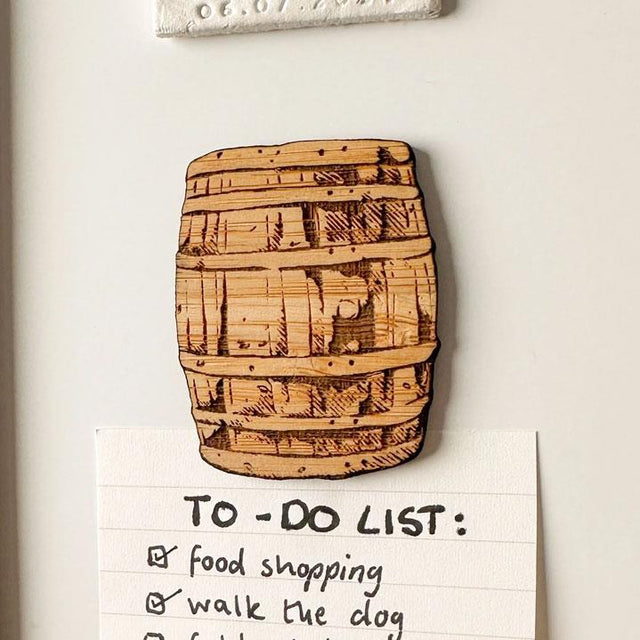 TO-DO LIST:
food shopping
walk the dog